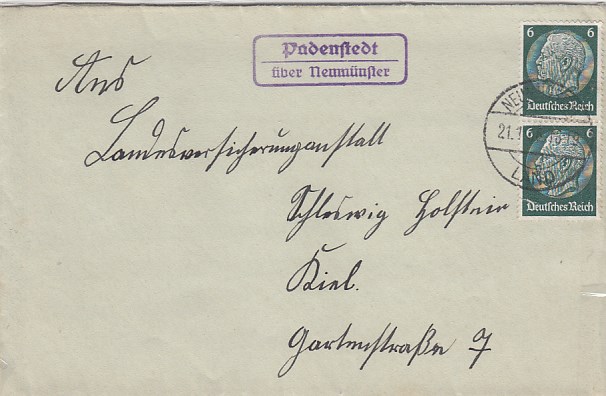 Padenstedt
über Neumünster
6 6
Deutsches Reich
6 6
Deutsches Reich
NEU
21.1
LAND
An
Landesversicherungsanstalt
Schleswig Holstein
Kiel.
Gartenstraße 7